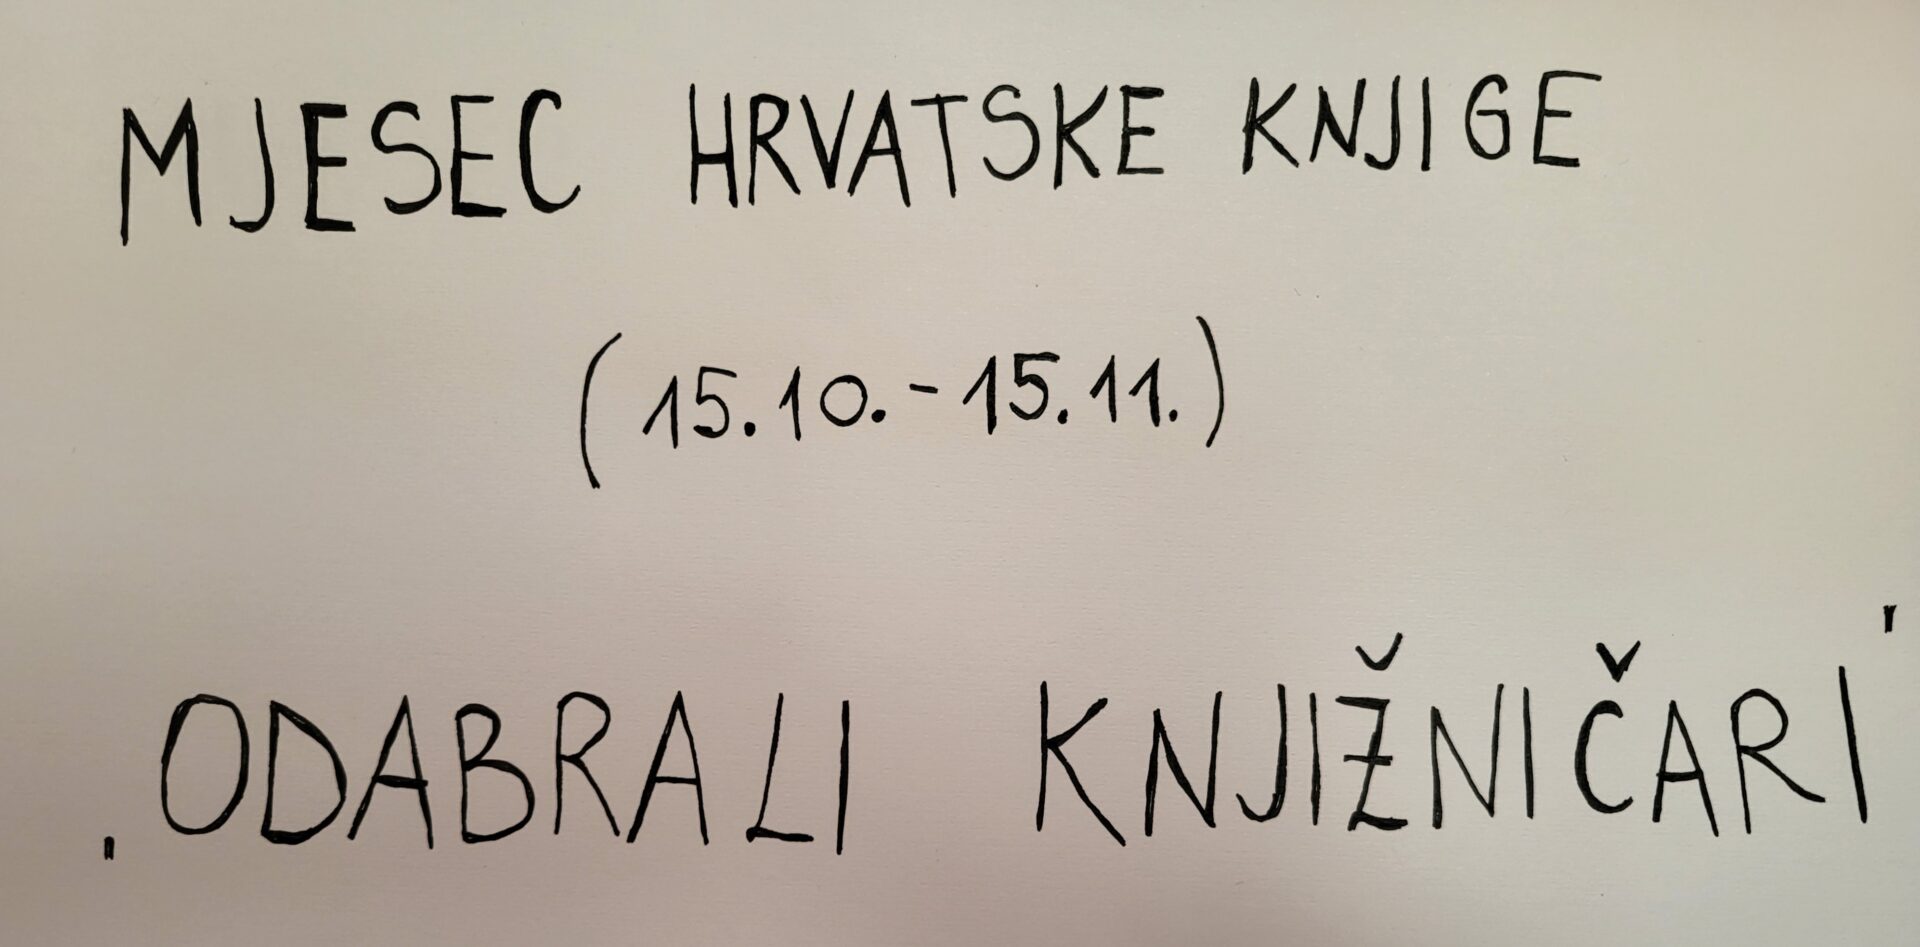 MJESEC HRVATSKE KNJIGE
(15.10.-15.11.)
'ODABRALI KNJIŽNIČARI'